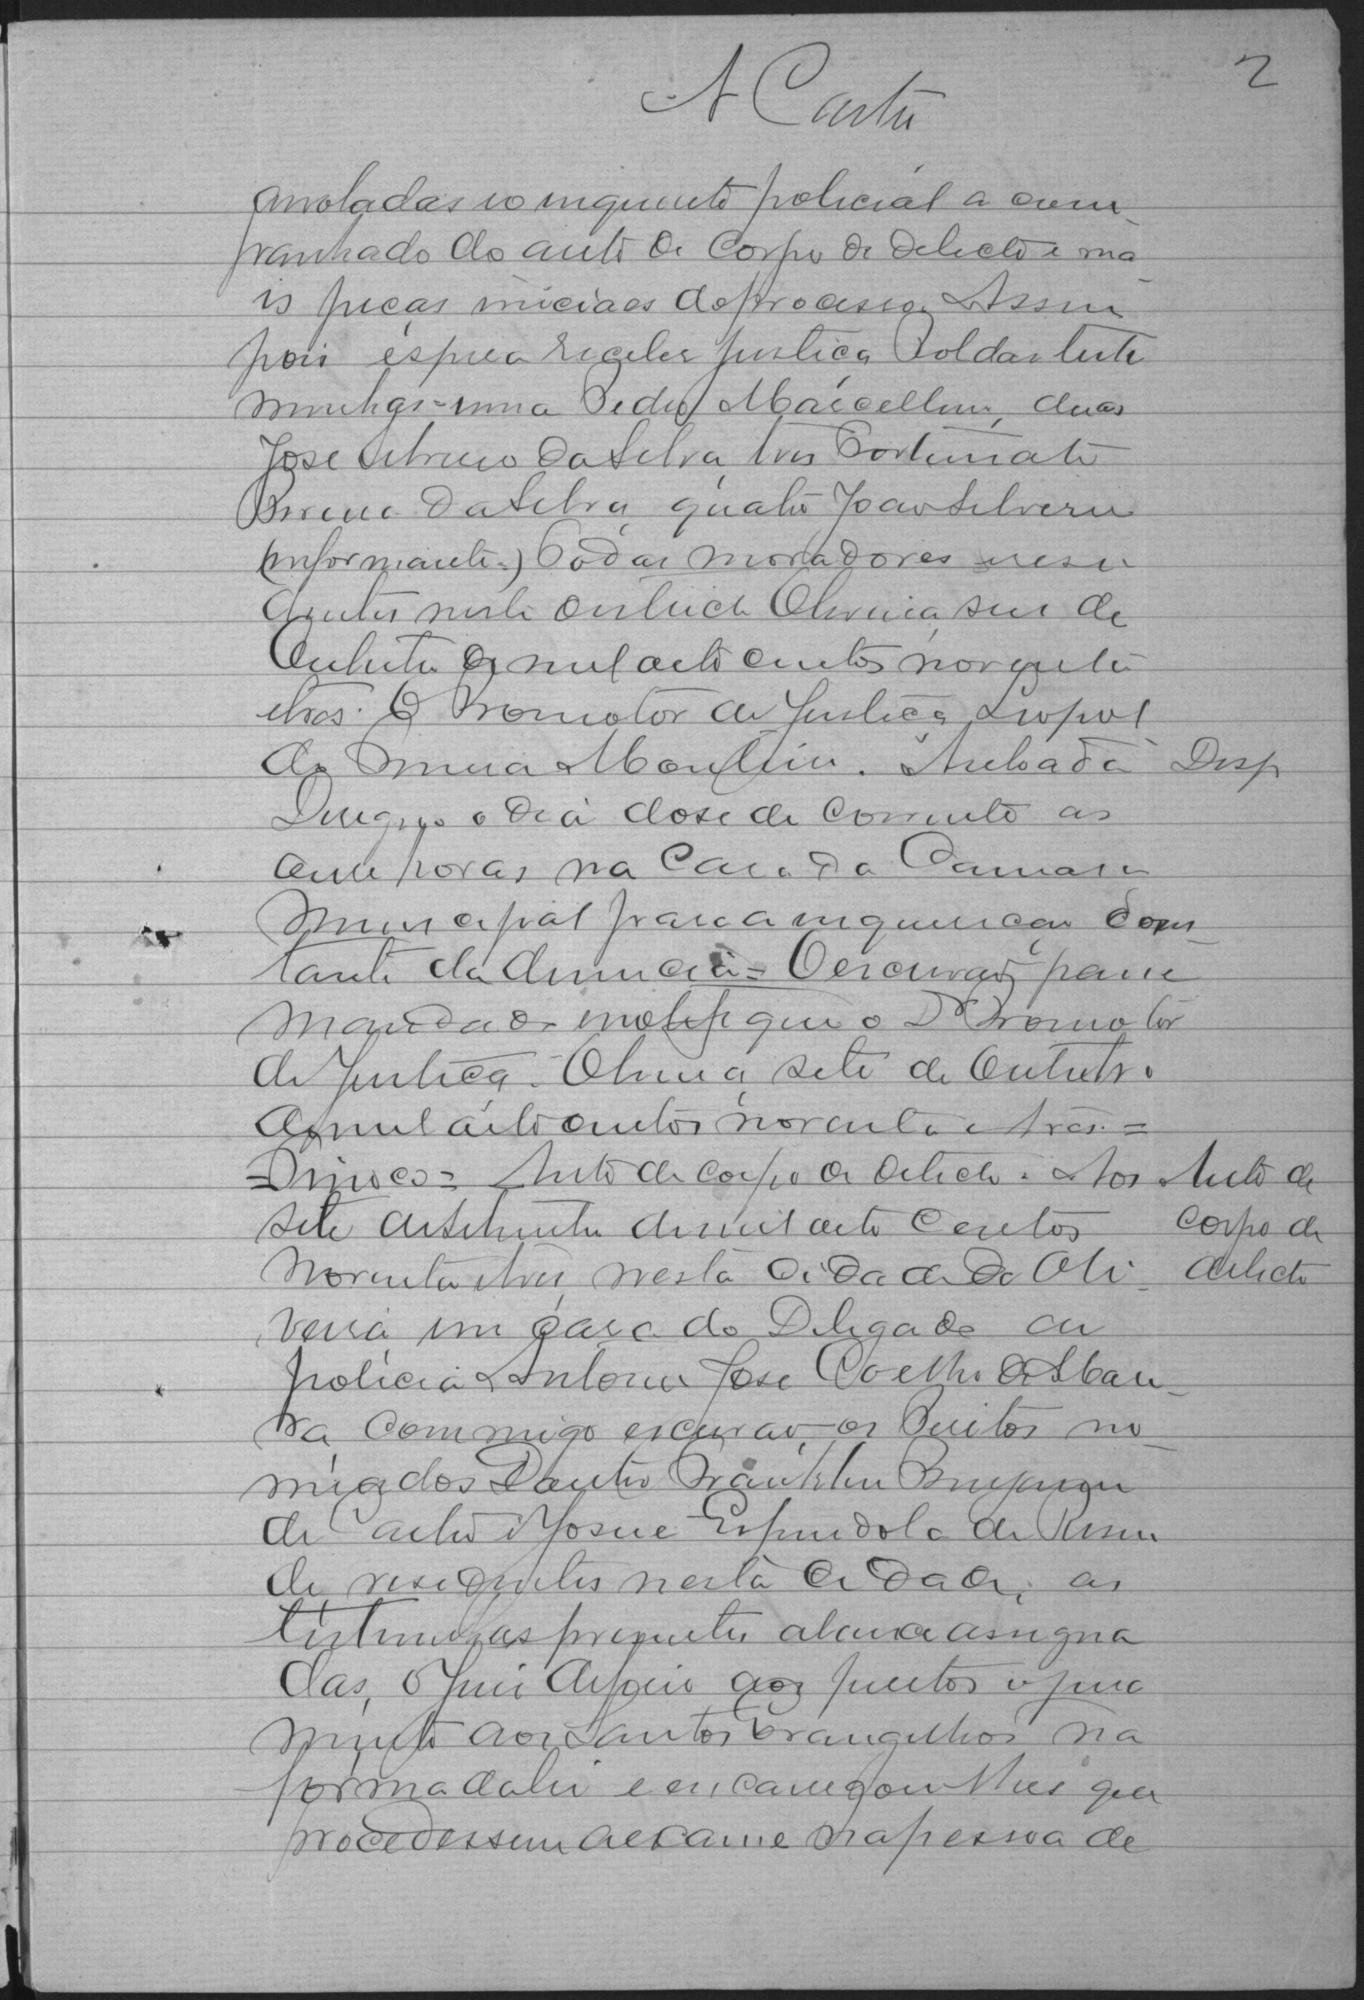 2
A Costa
arroladas e o inquerito policial a com
panhado do auto de Corpo de delicto e ma
is peças iniciaes do processo. Assim
pois espera receber justiça Rol das teste
munhas = uma Pedro Marcellino, duas
José Abreu da Silva, tres Fortunato
Bueno da Silva, quatro João Silverio
(informante.) Todas moradores e resi
dentes neste districto Oliveira, seis de
Outubro de mil oito centos noventa
e tres. O Promotor de Justiça Leopol
do Monteiro. Autoada Desp
Designo o dia dose do corrente as
onse horas na Casa da Camara
Municipal para a inquirição cons
tante da denuncia = O escrivão passe
mandado e notifique o Dr Promotor
de Justiça. Oliveira, sete de Outubro
de mil oito centos noventa e tres. =
= Auto de corpo de delicto. Aos Auto de
sete de Setembro de mil oito centos corpo de
noventa e tres, nesta Cidade da Oli delicto
veira em casa do Delegado de
policia Antonio José Coelho de Mou
ra, commigo escrivão, os Peritos no
miados Doutor Franklin Benjamim
de Castro e Josue Espindola de Resen
de, residentes nesta Cidade, as
testemunhas presentes abaixo assigna
das, o Juiz deferio aos peritos o jura
mento aos Santos Evangelhos na
forma da lei e encarregou lhes que
procedessem a exame na pessoa de